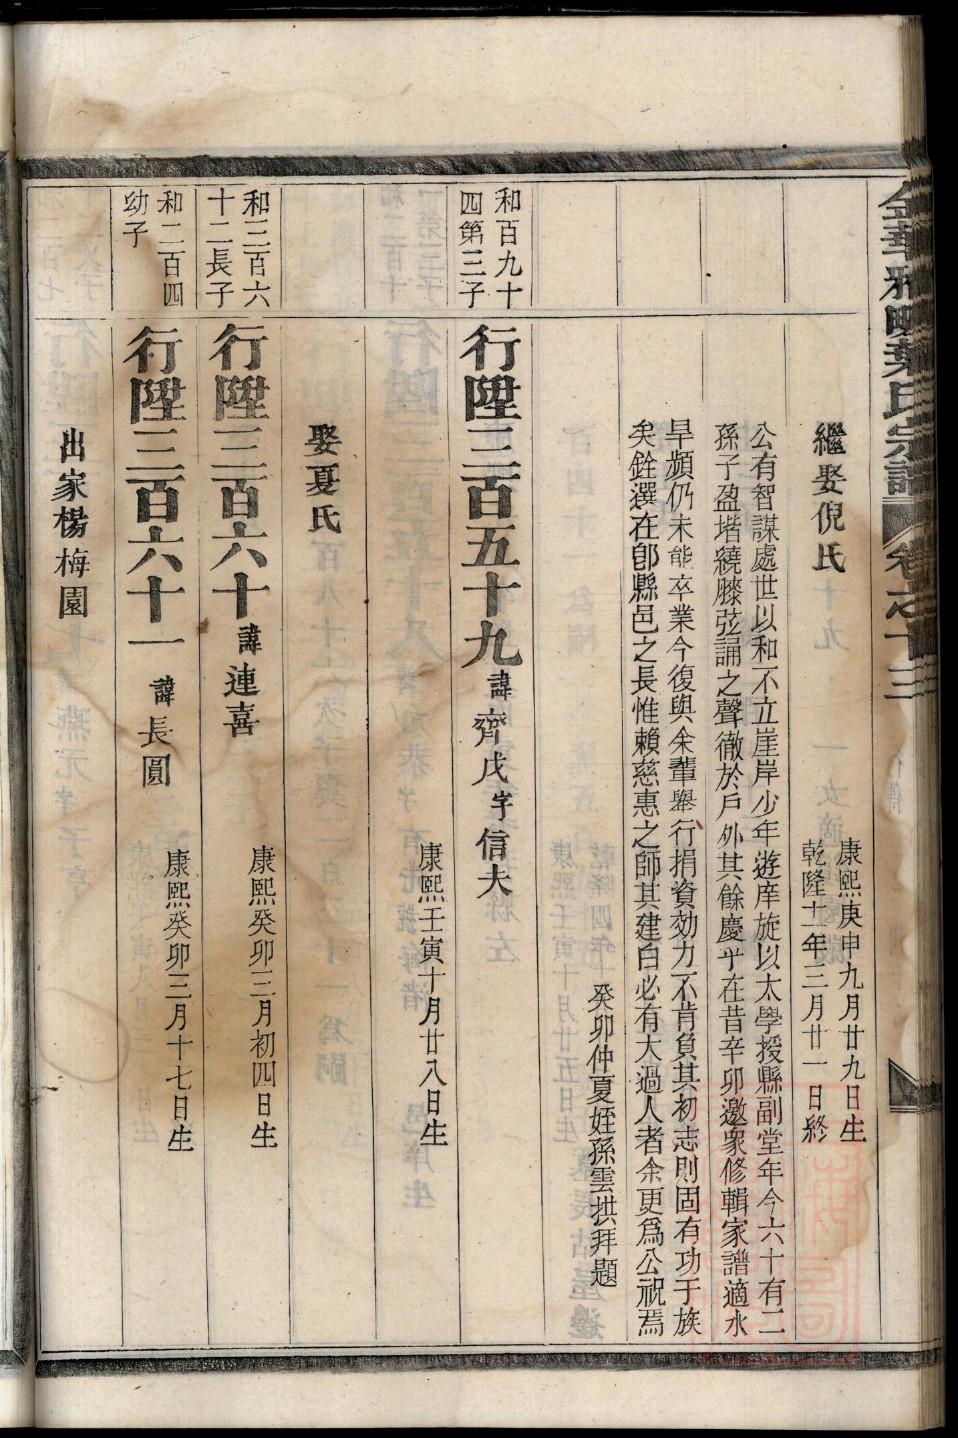 金華雅畈葉氏宗譜 卷之十三
繼娶倪氏
康熙庚申九月廿九日生
乾隆十一年三月廿一日終
公有智謀處世以和不立崖岸少年遊庠旋以太學授縣副堂年今六十有二
孫子盈堦繞膝弦誦之聲徹於戶外其餘慶乎在昔辛卯邀衆修輯家譜適水
旱頻仍未能卒業今復與余輩舉行捐資効力不肯負其初志則固有功于族
矣銓選在卽縣邑之長惟賴慈惠之師其建白必有大過人者余更爲公祝焉
癸卯仲夏姪孫雲拱拜題
和百九十
四第三子
行陞三百五十九 諱齊戊字信夫
康熙壬寅十月廿八日生
娶夏氏
和三百六
十二長子
行陞三百六十 諱連喜
康熙癸卯三月初四日生
和二百四
幼子
行陞三百六十一 諱長圓
康熙癸卯三月十七日生
出家楊梅園